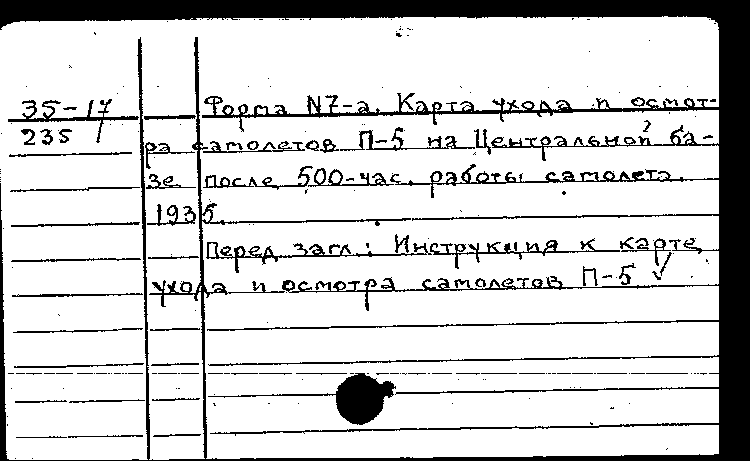 35-17 Форма N7-а. Карта ухода и осмот-
235 ра самолетов П-5 на Центральной ба-
зе после 500-час. работы самолета.
1935.
Перед загл.: Инструкция к карте
ухода и осмотра самолетов П-5